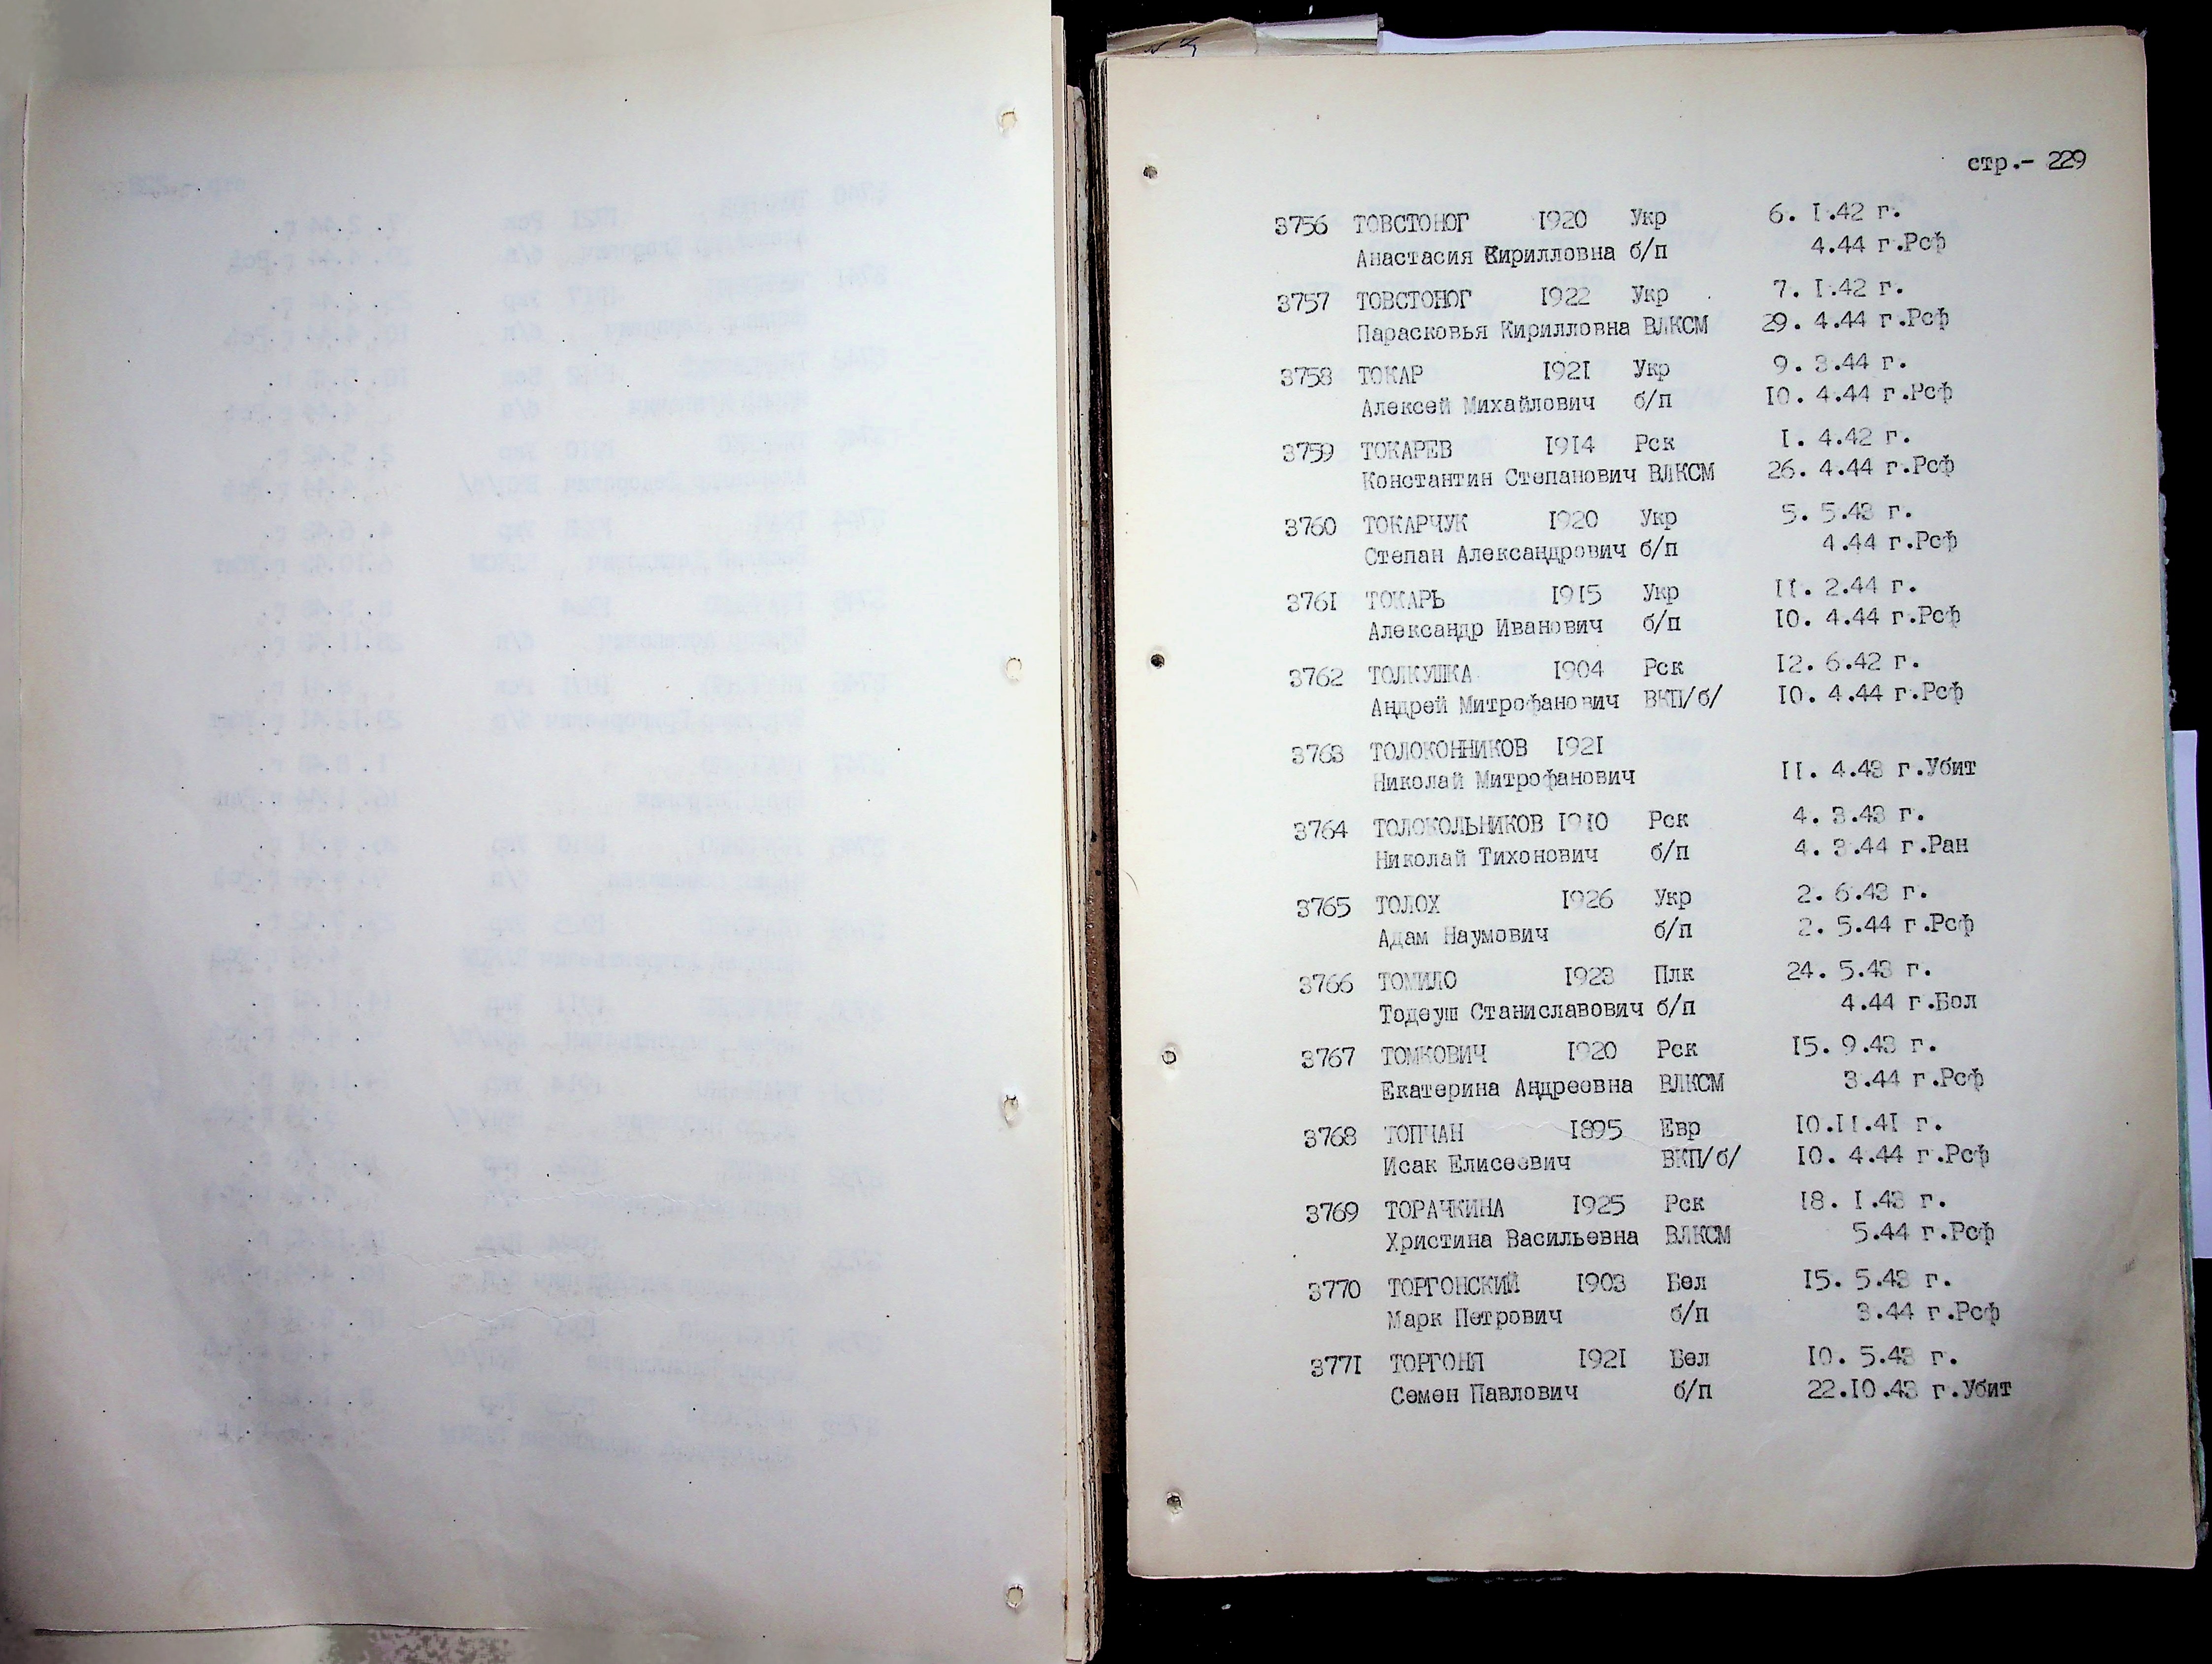 стр.- 229
3756 ТОВСТОНОГ 1920 Укр 6. I.42 г.
Анастасия Кирилловна б/п 4.44 г.Рсф
3757 ТОВСТОНОГ 1922 Укр 7. I.42 г.
Парасковья Кирилловна ВЛКСМ 29. 4.44 г.Рсф
3758 ТОКАР I92I Укр 9. 3.44 г.
Алексей Михайлович б/п I0. 4.44 г.Рсф
3759 ТОКАРЕВ I9I4 Рск I. 4.42 г.
Константин Степанович ВЛКСМ 26. 4.44 г.Рсф
3760 ТОКАРЧУК I920 Укр 5. 5.43 г.
Степан Александрович б/п 4.44 г.Рсф
376I ТОКАРЬ I9I5 Укр II. 2.44 г.
Александр Иванович б/п I0. 4.44 г.Рсф
3762 ТОЛКУШКА I904 Рск I2. 6.42 г.
Андрей Митрофанович ВКП/б/ I0. 4.44 г.Рсф
3763 ТОЛОКОННИКОВ I92I
Николай Митрофанович II. 4.43 г.Убит
3764 ТОЛОКОЛЬНИКОВ I9I0 Рск 4. 3.43 г.
Николай Тихонович б/п 4. 3.44 г.Ран
3765 ТОЛОХ I926 Укр 2. 6.43 г.
Адам Наумович б/п 2. 5.44 г.Рсф
3766 ТОМИЛО I923 Плк 24. 5.43 г.
Тодеуш Станиславович б/п 4.44 г.Бол
3767 ТОМКОВИЧ I920 Рск I5. 9.43 г.
Екатерина Андреевна ВЛКСМ 3.44 г.Рсф
3768 ТОПЧАН I895 Евр I0.II.4I г.
Исак Елисеевич ВКП/б/ I0. 4.44 г.Рсф
3769 ТОРАЧКИНА I925 Рск I8. I.43 г.
Христина Васильевна ВЛКСМ 5.44 г.Рсф
3770 ТОРГОНСКИЙ I903 Бел I5. 5.43 г.
Марк Петрович б/п 3.44 г.Рсф
377I ТОРГОНЯ I92I Бел I0. 5.43 г.
Семен Павлович б/п 22.I0.43 г.Убит